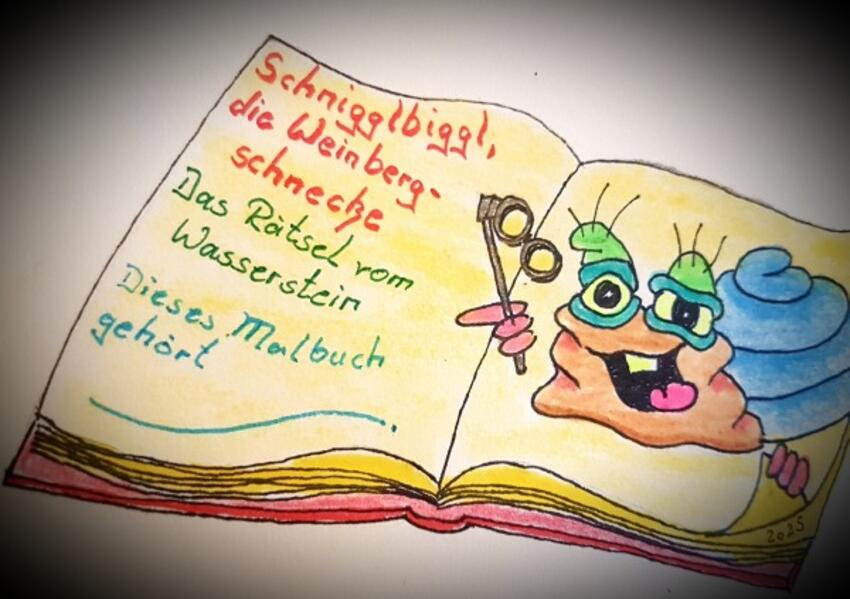 Schnigglbiggl,
die Weinberg-
schnecke
Das Rätsel vom
Wasserstein
Dieses Malbuch
gehört
.
2025